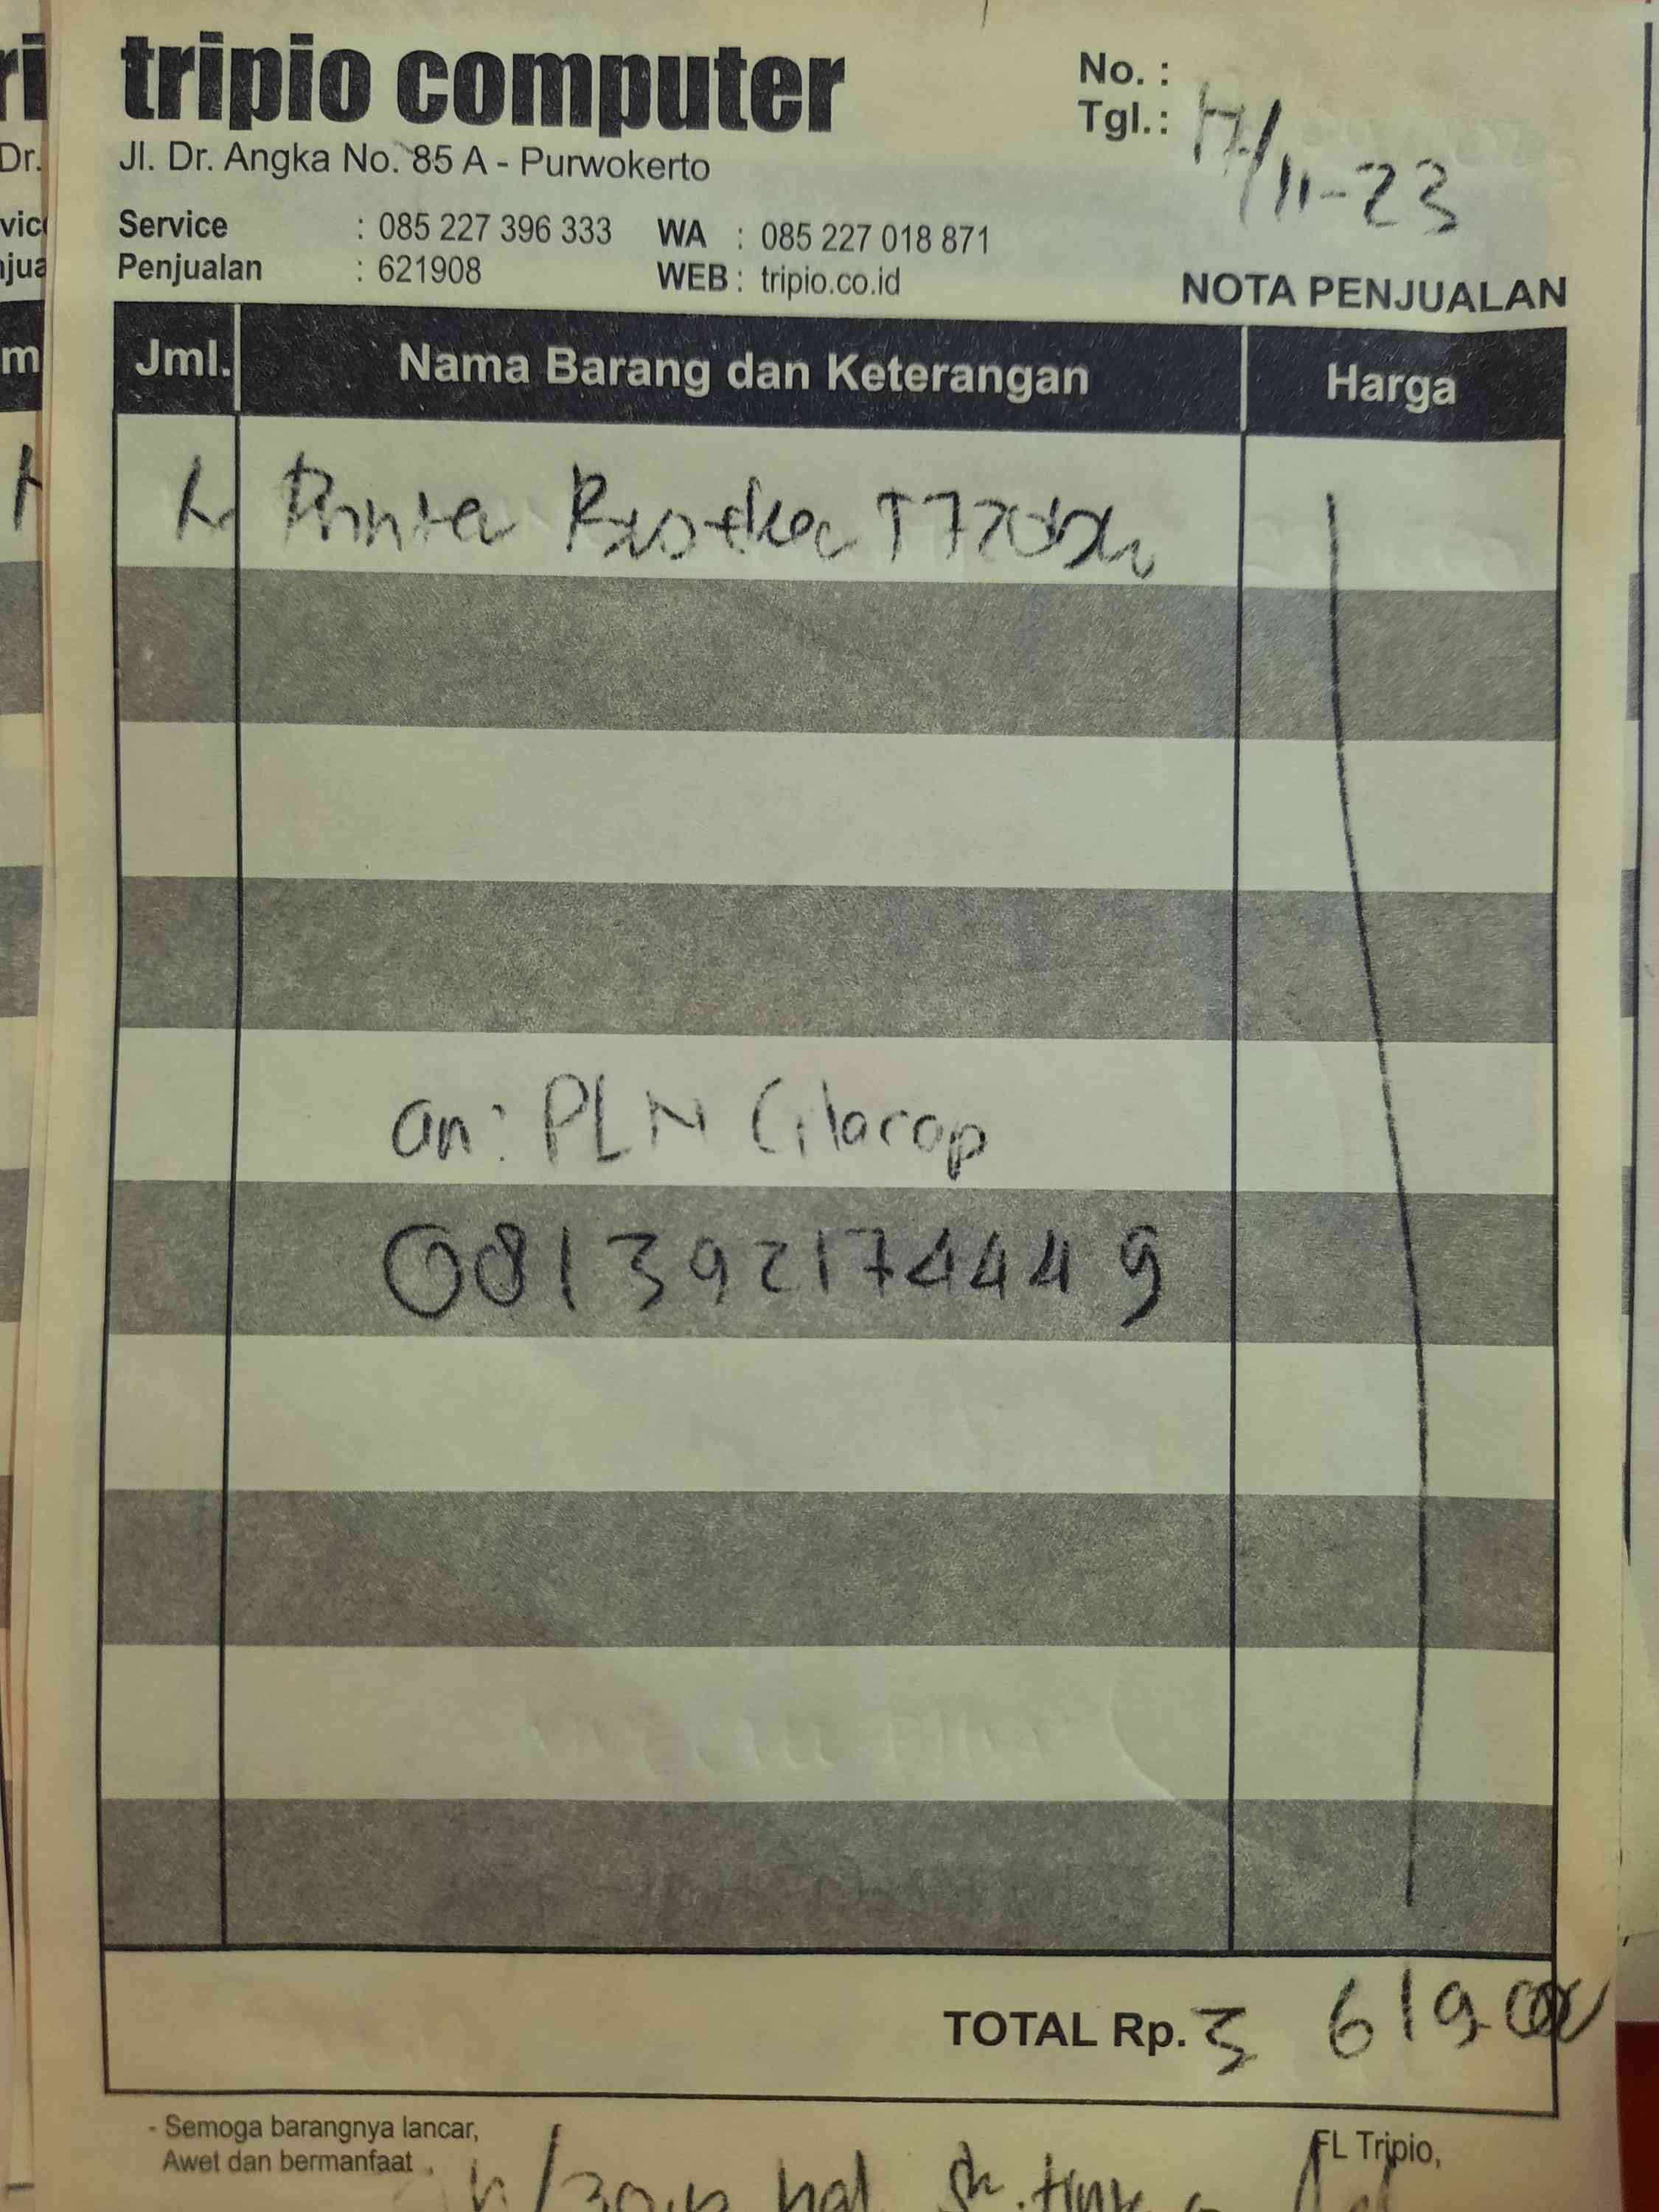 tripio computer
Jl. Dr. Angka No. 85 A - Purwokerto
No. :
Tgl. : 17/11-23
Service : 085 227 396 333 WA : 085 227 018 871
Penjualan : 621908 WEB : tripio.co.id
NOTA PENJUALAN
Jml. Nama Barang dan Keterangan Harga
Printer T720
an: PLN Cilacap
081392174449
TOTAL Rp. 3 619.000
- Semoga barangnya lancar,
Awet dan bermanfaat
FL Tripio,